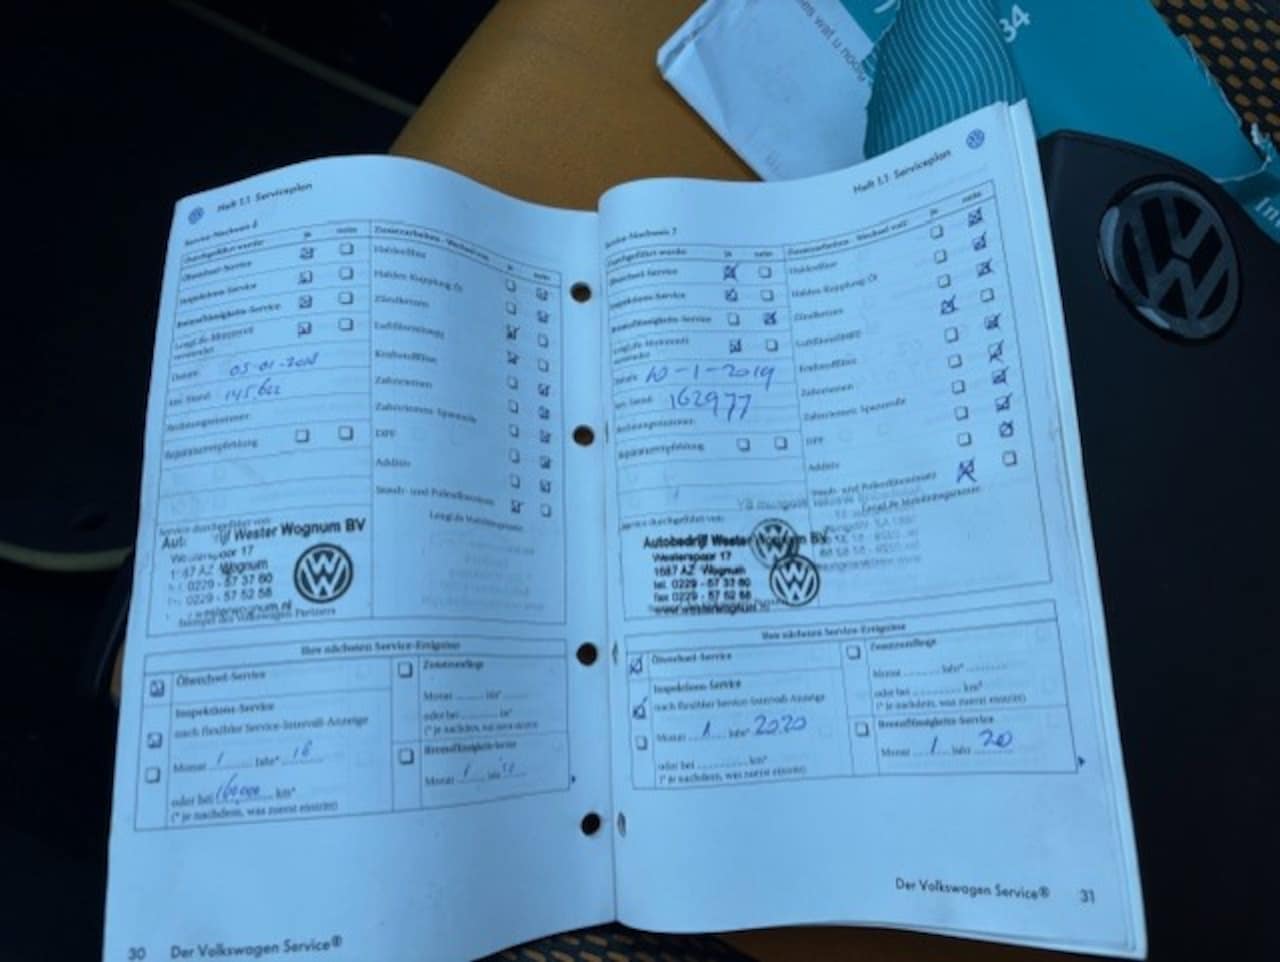 Heft 1.1 Serviceplan
Service-Nachweis 6
Durchgeführt wurde: ja nein
Ölwechsel-Service
Inspektions-Service
Bremsflüssigkeits-Service
LongLife-Motorenöl
verwendet
Datum: 05-01-2018
km-Stand: 145,622
Rechnungsnummer:
Reparaturempfehlung
Zusatzarbeiten - Wechsel von: ja nein
Haldexfilter
Haldex-Kupplung Öl
Zündkerzen
Luftfiltereinsatz
Kraftstofffilter
Zahnriemen
Zahnriemen-Spannrolle
DPF
Additiv
Staub- und Pollenfiltereinsatz
LongLife Mobilitätsgarantie
Service durchgeführt von:
Wester Wognum BV
Westerspoor 17
1687 AZ Wognum
0229 - 57 37 60
0229 - 57 52 58
westerwognum.nl
Stempel des Volkswagen Partners
Ihre nächsten Service-Ereignisse
Ölwechsel-Service
Inspektions-Service
nach flexibler Service-Intervall-Anzeige
Monat 1 Jahr*
oder bei 160,000 km*
(* je nachdem, was zuerst eintritt)
Zusatzpflege
Monat Jahr*
oder bei km*
(* je nachdem, was zuerst eintritt)
Bremsflüssigkeits-Service
Monat 1 Jahr
30 Der Volkswagen Service®
Heft 1.1 Serviceplan
Service-Nachweis 7
Durchgeführt wurde: ja nein
Ölwechsel-Service
Inspektions-Service
Bremsflüssigkeits-Service
LongLife-Motorenöl
verwendet
Datum: 10-1-2019
km-Stand: 162977
Rechnungsnummer:
Reparaturempfehlung
Zusatzarbeiten - Wechsel von: ja nein
Haldexfilter
Haldex-Kupplung Öl
Zündkerzen
Luftfiltereinsatz
Kraftstofffilter
Zahnriemen
Zahnriemen-Spannrolle
DPF
Additiv
Staub- und Pollenfiltereinsatz
LongLife Mobilitätsgarantie
Service durchgeführt von:
Autobedrijf Wester Wognum BV
Westerspoor 17
1687 AZ Wognum
tel. 0229 - 57 37 60
fax 0229 - 57 52 58
www.westerwognum.nl
Ihre nächsten Service-Ereignisse
Ölwechsel-Service
Inspektions-Service
nach flexibler Service-Intervall-Anzeige
Monat 1 Jahr* 2020
oder bei km*
(* je nachdem, was zuerst eintritt)
Zusatzpflege
Monat Jahr*
oder bei km*
(* je nachdem, was zuerst eintritt)
Bremsflüssigkeits-Service
Monat 1 Jahr 20
Der Volkswagen Service® 31
wat u nodig
34
In